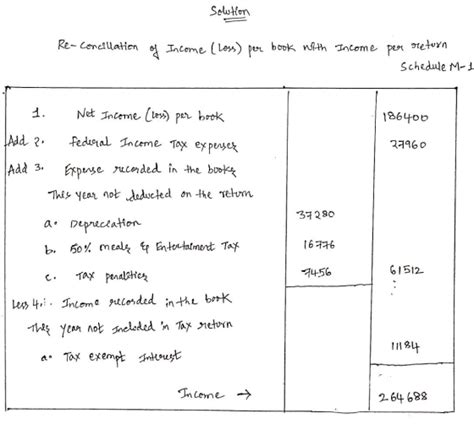 Solution
Re-Concillation of Income (Loss) per book with Income per return
Schedule M-1
1. Net Income (loss) per book 186400
Add 2. Federal Income Tax expenses 27960
Add 3. Expense recorded in the books
This year not deducted on the return
a. Depreciation 37280
b. 50% meals & Entertaiment Tax 16776
c. Tax penalities 7456 61512
Less 4. Income recorded in the book
This year not included in Tax return
a. Tax exempt Interest 11184
Income → 264688